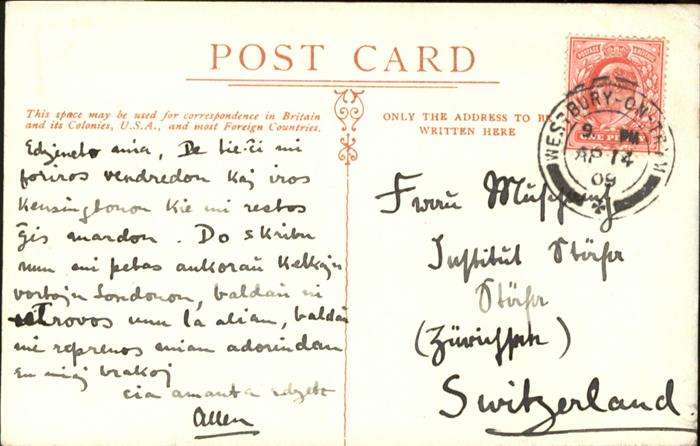 POST CARD
This space may be used for correspondence in Britain
and its Colonies, U.S.A., and most Foreign Countries.
ONLY THE ADDRESS TO BE
WRITTEN HERE
WESTBURY-ON-TRYM
9 PM
AP 14
09
ONE PENNY
Edzineto mia, De tie-ĉi mi
foriros vendredon kaj iros
Kensingtonon kie mi restos
ĝis mardon. Do skribu
nun mi petas ankoraŭ kelkajn
vortojn Londonon, baldaŭ ni
retrovos unu la alian, baldaŭ
mi reprenos mian adorindan
en miaj brakoj
cia amanta edzeto
Allen
Frau
Institut Stäfa
Stäfa
(Zürichsee)
Switzerland